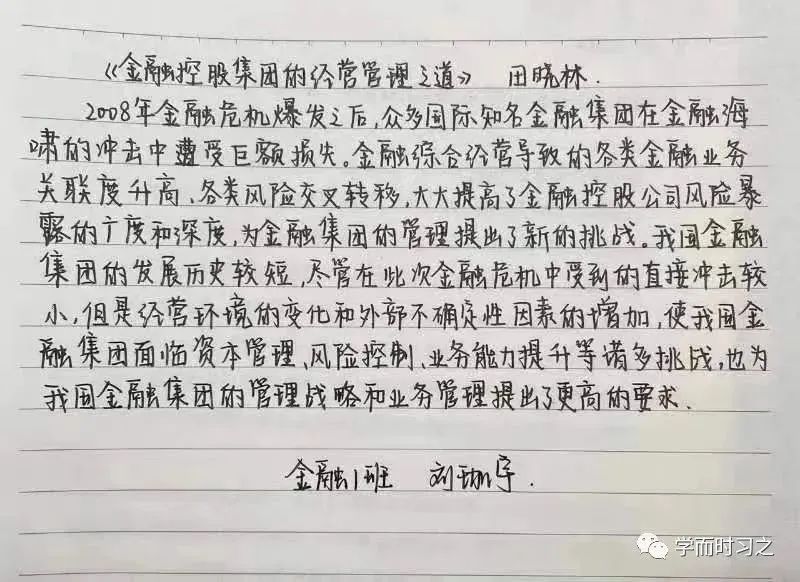 《金融控股集团的经营管理之道》 田晓林.
2008年金融危机爆发之后,众多国际知名金融集团在金融海
啸的冲击中遭受巨额损失。金融综合经营导致的各类金融业务
关联度升高、各类风险交叉转移,大大提高了金融控股公司风险暴
露的广度和深度,为金融集团的管理提出了新的挑战。我国金融
集团的发展历史较短,尽管在此次金融危机中受到的直接冲击较
小,但是经营环境的变化和外部不确定性因素的增加,使我国金
融集团面临资本管理、风险控制、业务能力提升等诸多挑战,也为
我国金融集团的管理战略和业务管理提出了更高的要求.
金融1班 刘珈宇.
学而时习之